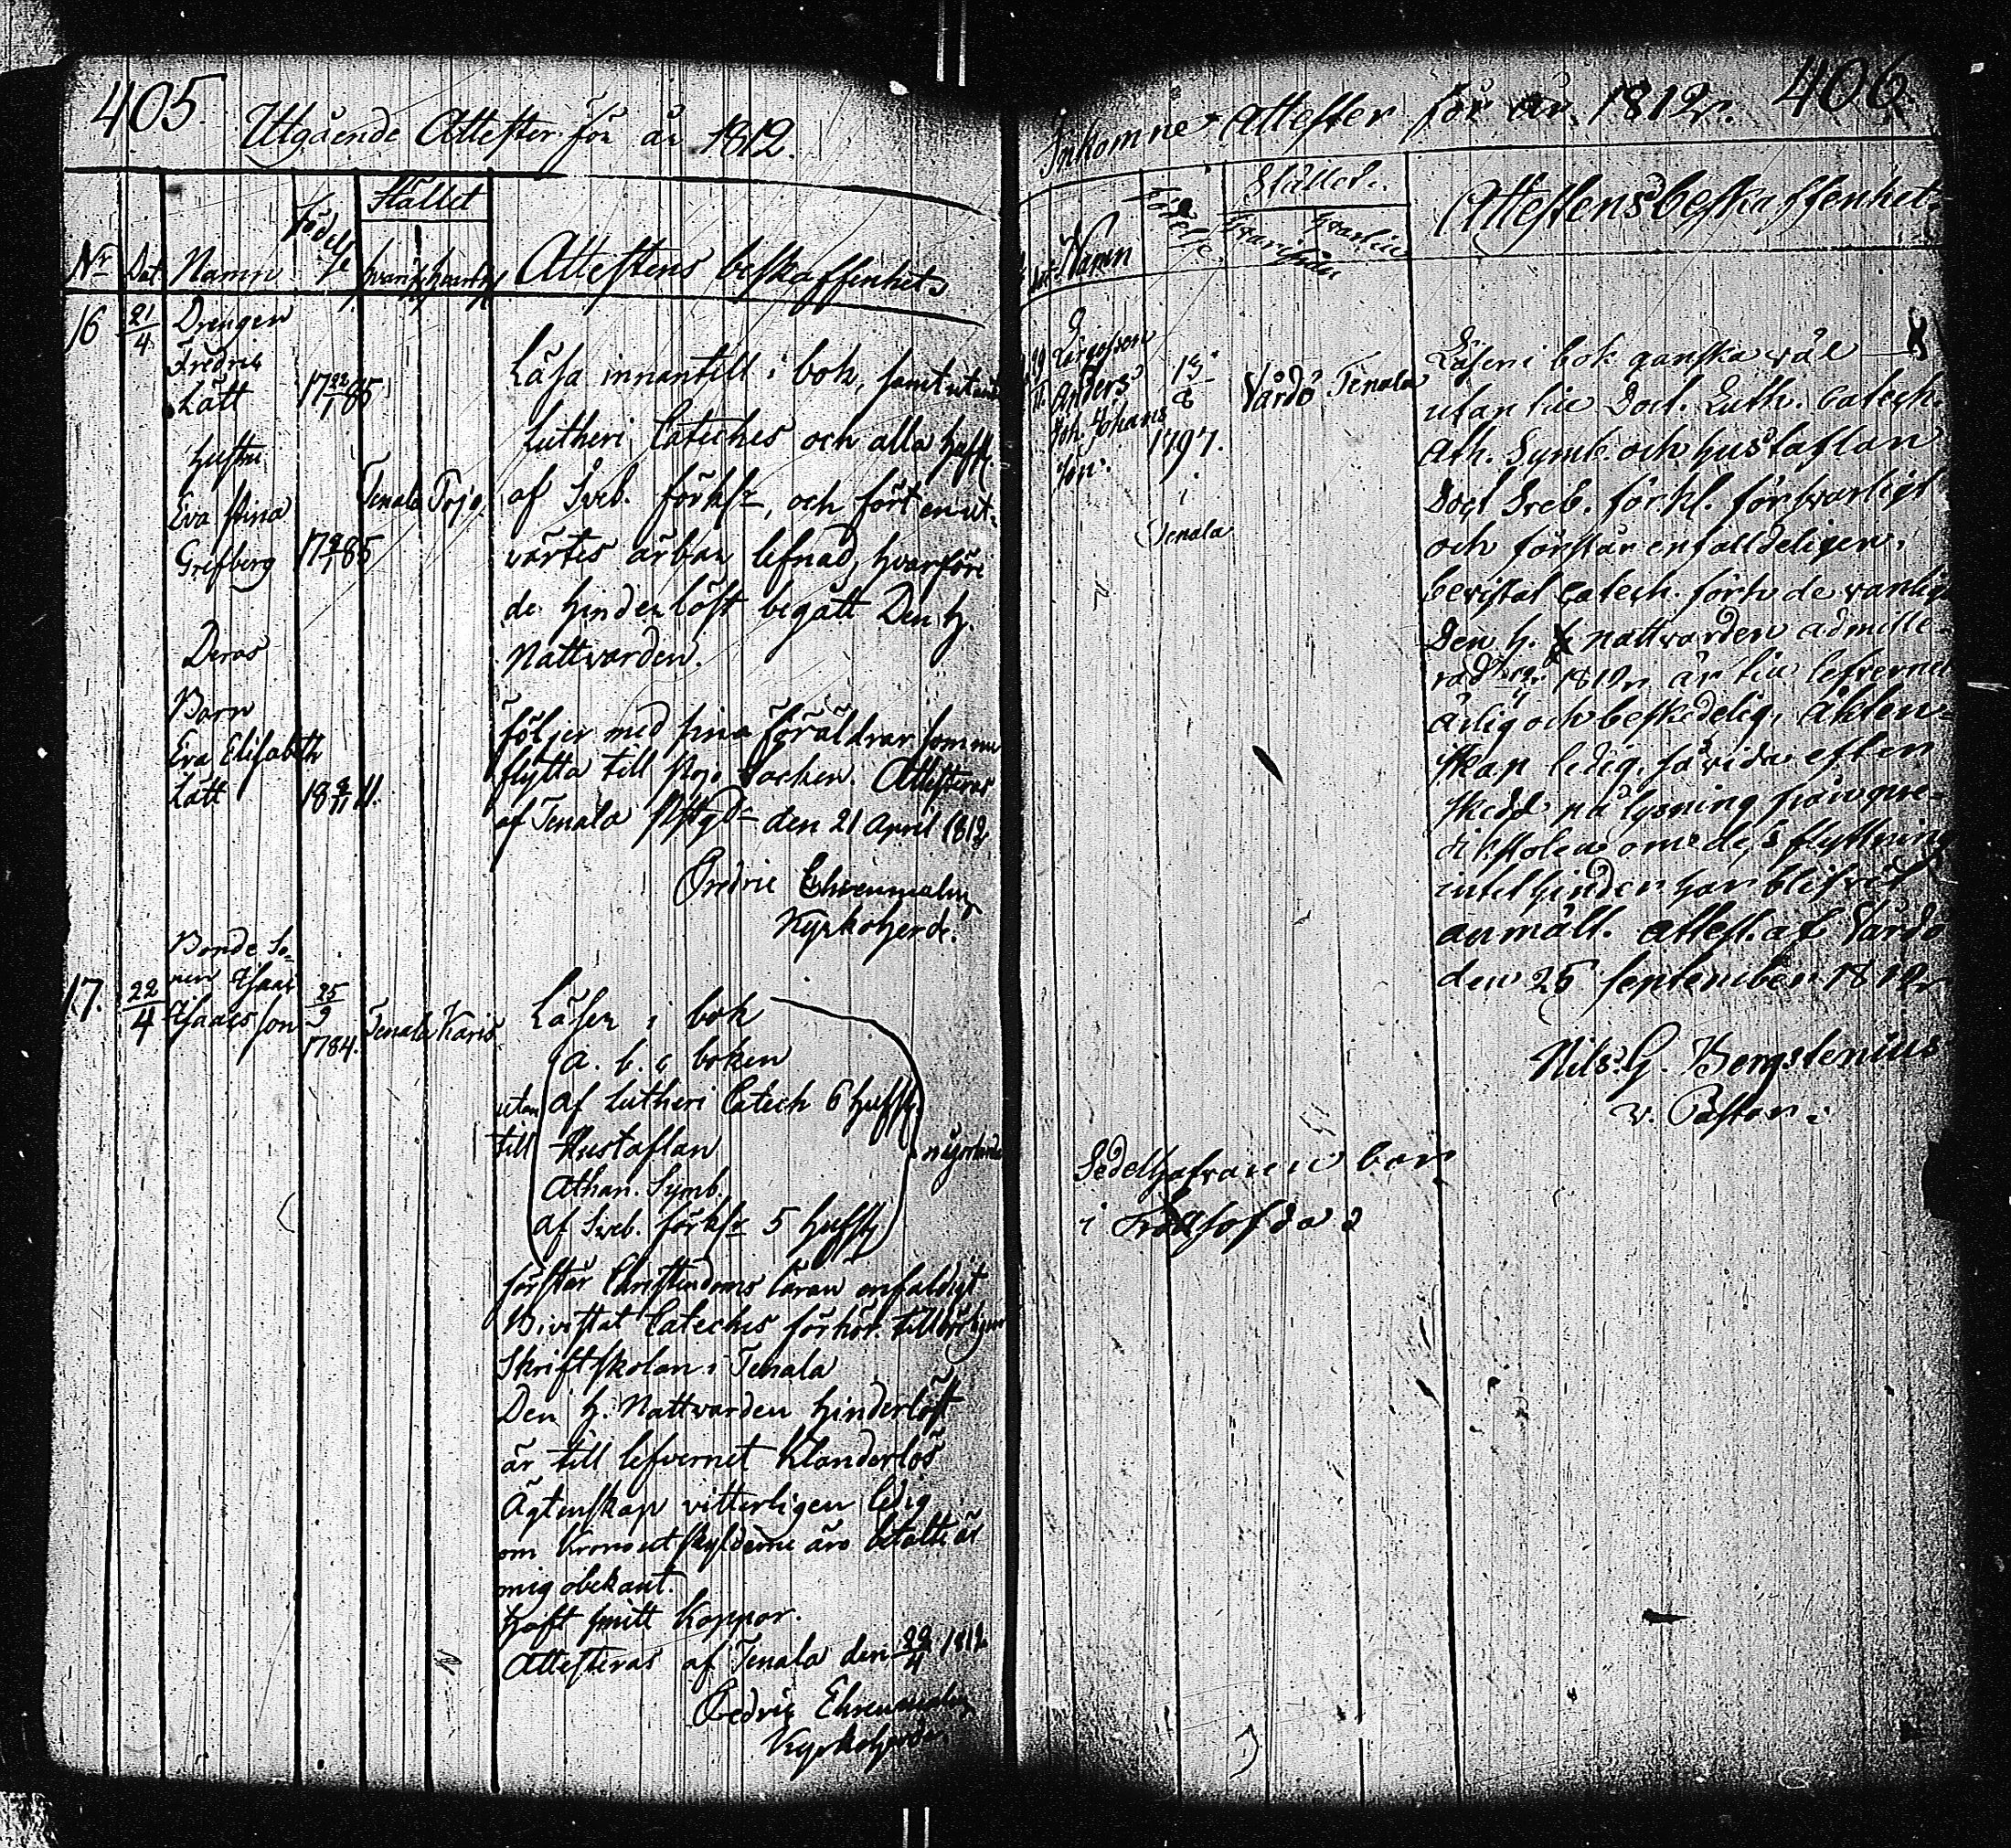 405.
Utgående Attester för år 1812.
Nr Dat. Namn Födelse Stället
Attestens beskaffenhet
16 21/4 Drengen
Fredric
Lätt 17 22/1 85
Hustru
Eva Stina
Grefberg 85
Tenala Pojo
Deras
Barn
Eva Elisabeth
Lätt 18 11.
Läsa innantill i bok, samt utantill
Lutheri Cateches och alla Hufst.
af Sveb. förkl:r, och fört en ut-
värtes ärbar lefnad, hvarföre
de hinderlöst begått Den H.
Nattvarden.
följer med sina föräldrar som nu
flytta till Pojo Socken. Attesteras
af Tenala Pstgd den 21 April 1812
Fredric Ehrenmalm
Kyrkoherde.
17. 22/4 Bonde So-
nen Isaac
Isaacsson 25/9
1784. Tenala Karis
Läser i bok
a. b. c boken
utan af Lutheri Catech 6 Hufst.
till Hustaflan någorlunda
Athan. Symb.
af Sveb. förkl:r 5 Hufst
förstår Christendoms läran enfaldigt
Bivistat Cateches förhör.
Skriftskolan i Tenala
Den H. Nattvarden hinderlöst
är till lefvernet Klanderlös
Ägtenskap vitterligen ledig
om Kronoutskylderne äro betalte är
mig obekant.
Haft smitt Koppor.
Attesteras af Tenala den 22/4 1812
Fredric Ehrenmalm
Kyrkoherde.
406.
Inkomne Attester för år 1812.
Namn Födelse Stället.
Hvarifrån Hvartill
Attestens beskaffenhet
Anders
Joh. Johans
son. 13/8
1797.
i
Tenala
Vårdö Tenala
Läser i bok ganska väl
utan till Doct. Luth. Catech.
Ath. Symb. och Hustaflan
Doct Sveb. förkl. försvarligt
och förstår enfalldeligen,
bevistat Catech. förh. de vanlige
Den H. nattvarden admitte-
rad 1812. är till lefvernet
ärlig och beskedelig, äkten-
skap ledig, så vida efter
skedd pålysning från pre-
dikstolen om dess flyttning
intet hinder har blifvit
anmält. Attest. af Vårdö
den 25 September 1812
Nils G. Bergstenius
v. Pastor.
Sedelhafvaren bor
i